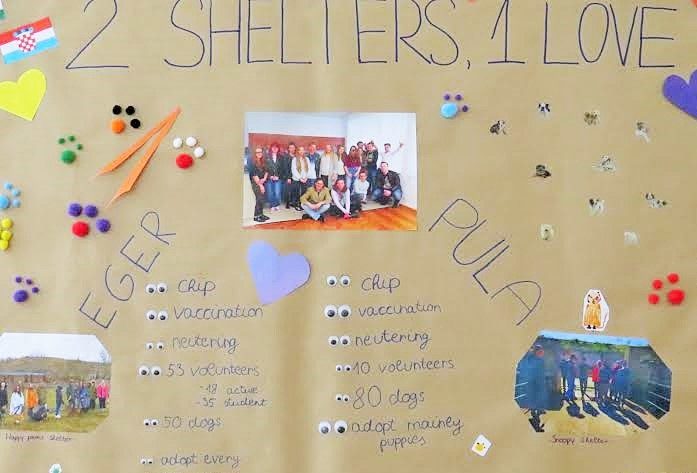 2 SHELTERS, 1 LOVE
EGER
chip
vaccination
neutering
53 volunteers
-18 active
-35 student
50 dogs
adopt every
Happy paws shelter
PULA
chip
vaccination
neutering
10 volunteers
80 dogs
adopt mainley
puppies
Snoopy shelter